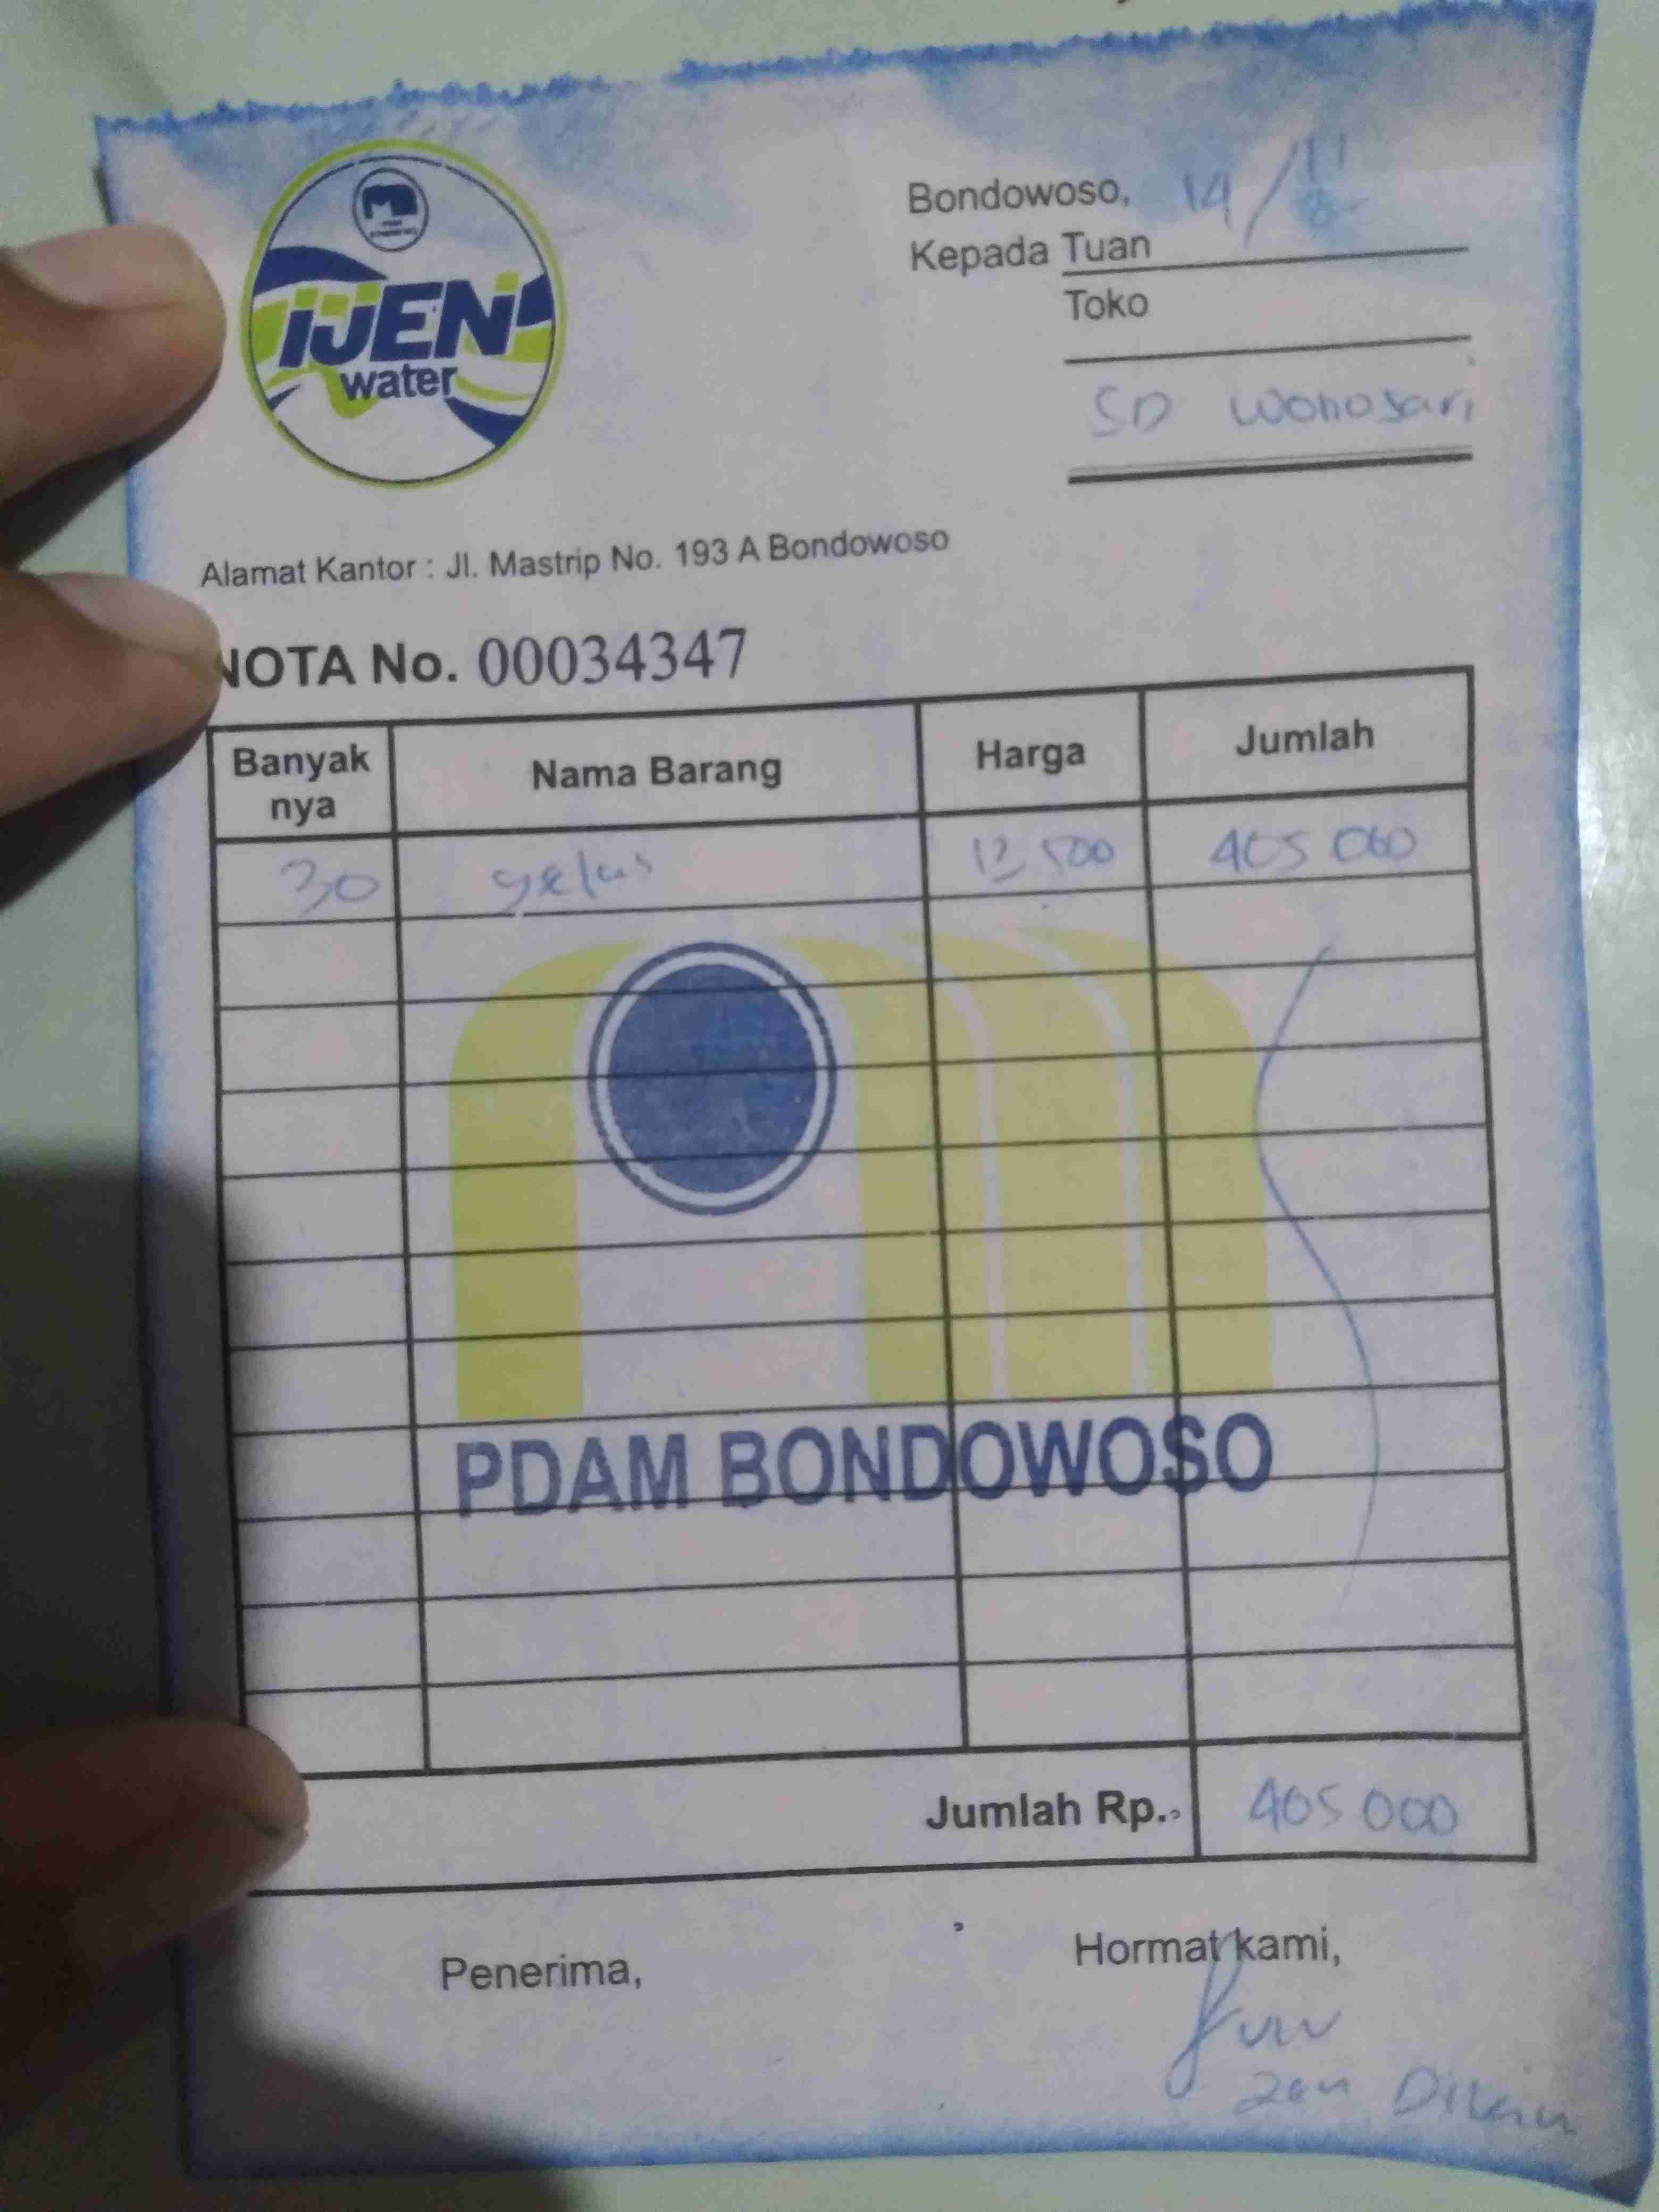 IJEN
water
Bondowoso, 14/11
Kepada Tuan
Toko
SD Wonosari
Alamat Kantor : Jl. Mastrip No. 193 A Bondowoso
NOTA No. 00034347
Banyak nya Nama Barang Harga Jumlah
30 gelas 13 500 405 000
PDAM BONDOWOSO
Jumlah Rp. 405 000
Penerima, Hormat kami,